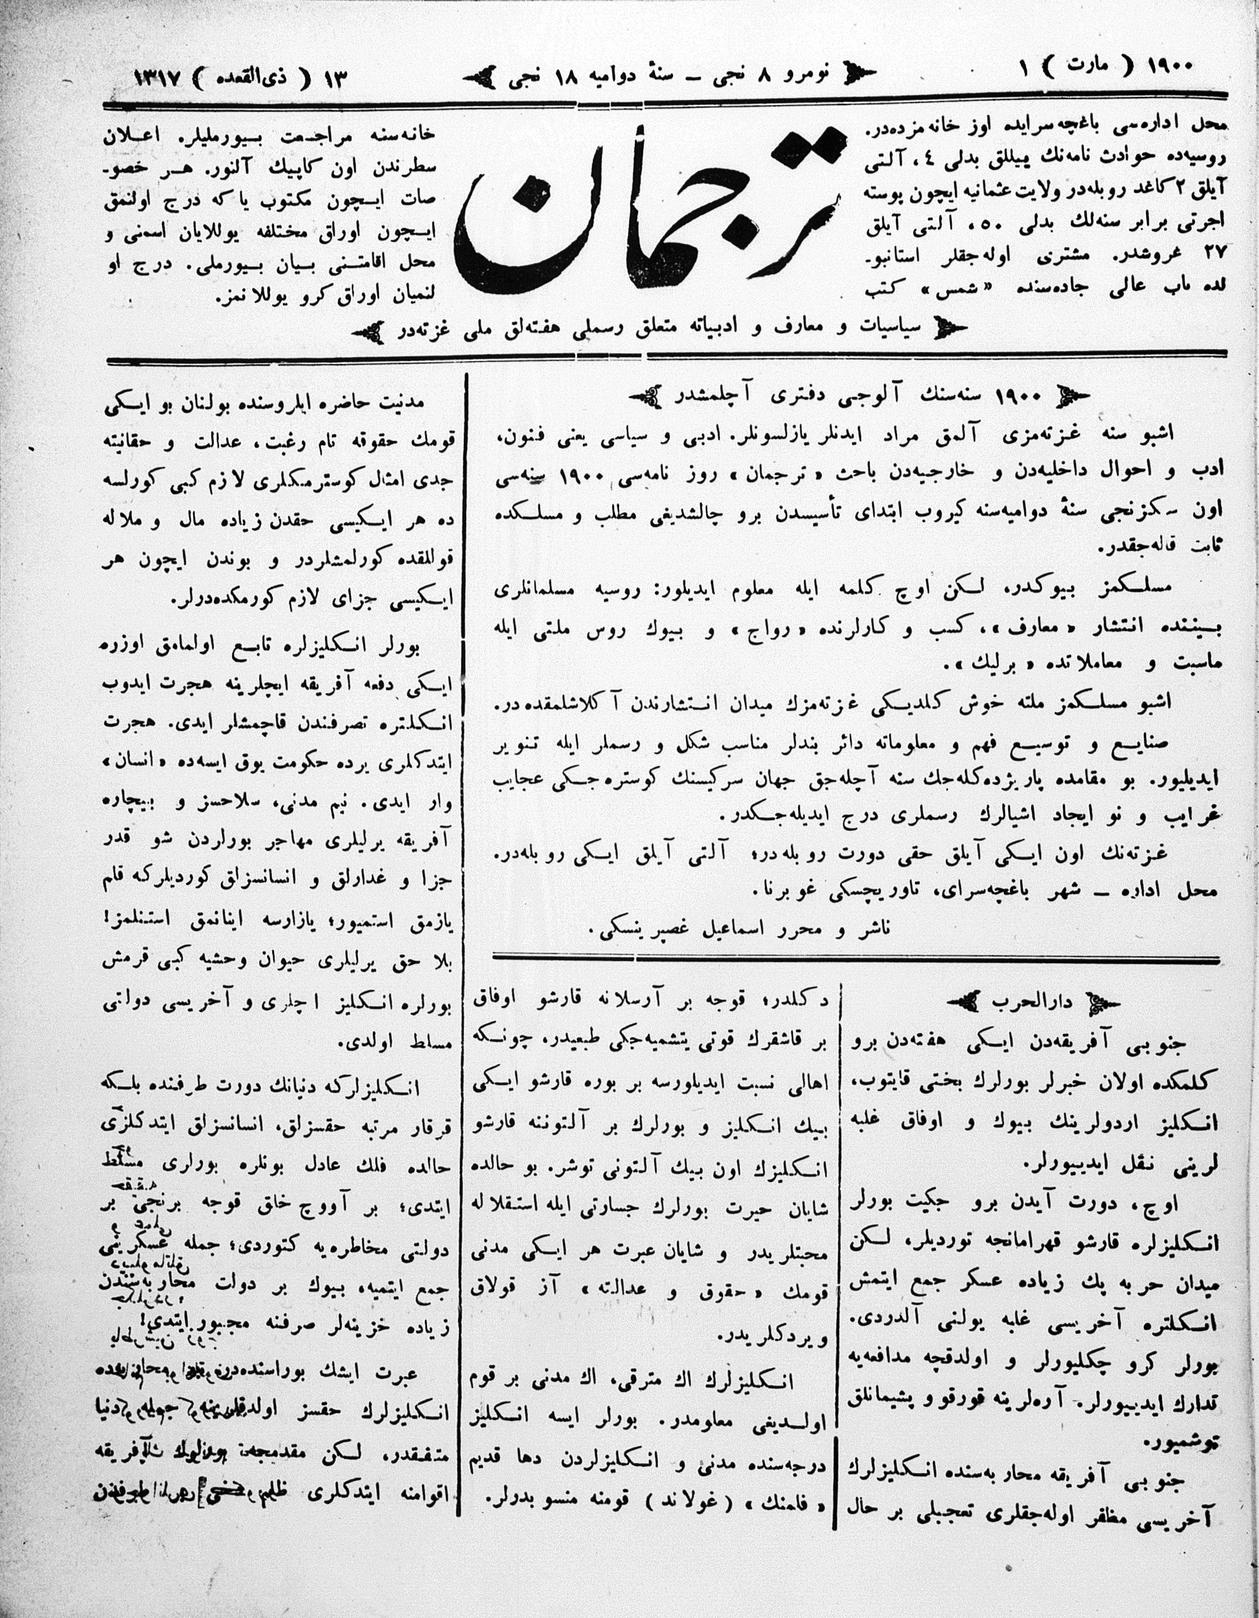 ١٩٠٠ ( مارت ) ١
نومرو ٨ نجی – سنهٔ دوامیه ١٨ نجی
١٣ ( ذی القعده ) ١٣١٧
محل اداره‌سی باغچه‌سرایده اوز خانه مزده‌در.
روسیه‌ده حوادث نامه‌نك ییللق بدلی ٤، آلتی
آیلق ٢ کاغد روبله‌در ولایت عثمانیه ایچون پوسته
اجرتی برابر سنه‌لك بدلی ٥٠، آلتی آیلق
٢٧ غروشدر. مشتری اوله‌جقلر استانبو-
لده باب عالی جاده‌سنده «شمس» کتب
ترجمان
خانه‌سنه مراجعت بیورملیلر. اعلان
سطرندن اون کاپیك آلنور. هر خصو-
صات ایچون مکتوب یا که درج اولنمق
ایچون اوراق مختلفه یوللایان اسمنی و
محل اقامتنی بیان بیورملی. درج او
لنمیان اوراق کرو یوللانمز.
سیاسیات و معارف و ادبیاته متعلق رسملی هفته‌لق ملی غزته‌در
١٩٠٠ سنه‌سنك آلوجی دفتری آچلمشدر
اشبو سنه غزته‌مزی آلمق مراد ایدنلر یازلسونلر. ادبی و سیاسی یعنی فنون،
ادب و احوال داخلیه‌دن و خارجیه‌دن باحث «ترجمان» روز نامه‌سی ١٩٠٠ سنه‌سی
اون سکزنجی سنهٔ دوامیه‌سنه کیروب ابتدای تأسیسدن برو چالشدیغی مطلب و مسلکده
ثابت قاله‌جقدر.
مسلکمز بیوکدر، لکن اوچ کلمه ایله معلوم ایدیلور: روسیه مسلمانلری
بیننده انتشار «معارف»، کسب و کارلرنده «رواج» و بیوك روس ملتی ایله
ماسبت و معاملاتده «برلیك».
اشبو مسلکمز ملته خوش کلدیکی غزته‌مزك میدان انتشارندن آکلاشلمقده‌در.
صنایع و توسیع فهم و معلوماته دائر بندلر مناسب شکل و رسملر ایله تنویر
ایدیلیور. بو مقامده پاریژده کله‌جك سنه آچله‌جق جهان سرکیسنك کوستره‌جکی عجایب
غرایب و نو ایجاد اشیالرك رسملری درج ایدیله‌جکدر.
غزته‌نك اون ایکی آیلق حقی دورت روبله‌در؛ آلتی آیلق ایکی روبله‌در.
محل اداره – شهر باغچه‌سرای، تاوریچسکی غوبرنا.
ناشر و محرر اسماعیل غصپرینسکی.
دارالحرب
جنوبی آفریقه‌دن ایکی هفته‌دن برو
کلمکده اولان خبرلر بورلرك بختی قایتوب،
انکلیز اردولرینك بیوك و اوفاق غلبه
لرینی نقل ایدییورلر.
اوچ، دورت آیدن برو جکیت بورلر
انکلیزلره قارشو قهرامانجه توردیلر، لکن
میدان حربه پك زیاده عسکر جمع ایتمش
انکلتره آخریسی غلبه یولنی آلدردی.
بورلر کرو چکلیورلر و اولدقچه مدافعه‌یه
تدارك ایدییورلر. آره‌لرینه قورقو و پشیمانلق
توشمیور.
جنوبی آفریقه محاربه‌سنده انکلیزلرك
آخریسی مظفر اوله‌جقلری تعجبلی بر حال
دکلدر؛ قوجه بر آرسلانه قارشو اوفاق
بر قاشقرك قوتی یتشمیه‌جکی طبعیدر، چونکه
اهالی نسبت ایدیلورسه بر بوره قارشو ایکی
بیك انکلیز و بورلرك بر آلتوننه قارشو
انکلیزك اون بیك آلتونی توشر. بو حالده
شایان حیرت بورلرك جسارتی ایله استقلاله
محبتلریدر و شایان عبرت هر ایکی مدنی
قومك «حقوق و عدالته» آز قولاق
ویردکلریدر.
انکلیزلرك اك مترقی، اك مدنی بر قوم
اولدیغی معلومدر. بورلر ایسه انکلیز
درجه‌سنده مدنی و انکلیزلردن دها قدیم
«فلمنك» (غولاند) قومنه منسوبدرلر.
مدنیت حاضره ایلروسنده بولنان بو ایکی
قومك حقوقه تام رغبت، عدالت و حقانیته
جدی امثال کوسترمکلری لازم کبی کورلسه
ده هر ایکیسی حقدن زیاده مال و ملاله
قوللقده کورلمشلردر و بوندن ایچون هر
ایکیسی جزای لازم کورمکده‌درلر.
بورلر انکلیزلره تابع اولمامق اوزره
ایکی دفعه آفریقه ایچلرینه هجرت ایدوب
انکلتره تصرفندن قاچمشلر ایدی. هجرت
ایتدکلری یرده حکومت یوق ایسه‌ده «انسان»
وار ایدی. نیم مدنی، سلاحسز و بیچاره
آفریقه یرلیلری مهاجر بورلردن شو قدر
جزا و غدارلق و انسانسزلق کوردیلرکه قلم
یازمق استمیور؛ یازارسه اینانمق استنلمز!
بلا حق یرلیلری حیوان وحشیه کبی قرمش
بورلره انکلیز اچلری و آخریسی دولتی
مسلط اولدی.
انکلیزلرکه دنیانك دورت طرفنده بلکه
قرقار مرتبه حقسزلق، انسانسزلق ایتدکلری
حالده فلك عادل بونلره بورلری مسلط
ایتدی؛ بر آووچ خلق قوجه برنجی بر
دولتی مخاطره‌یه کتوردی؛ جمله عسکرینی
جمع ایتمیه، بیوك بر دولت محاربه‌سندن
زیاده خزینه‌لر صرفنه مجبور ایتدی!
عبرت ایشك بوراسنده‌در. محاربه‌ده
انکلیزلرك حقسز اولدقلرینه جمله دنیا
متفقدر، لکن مقدمجه بورلرك آفریقه
اقوامنه ایتدکلری ظلم طرفندن